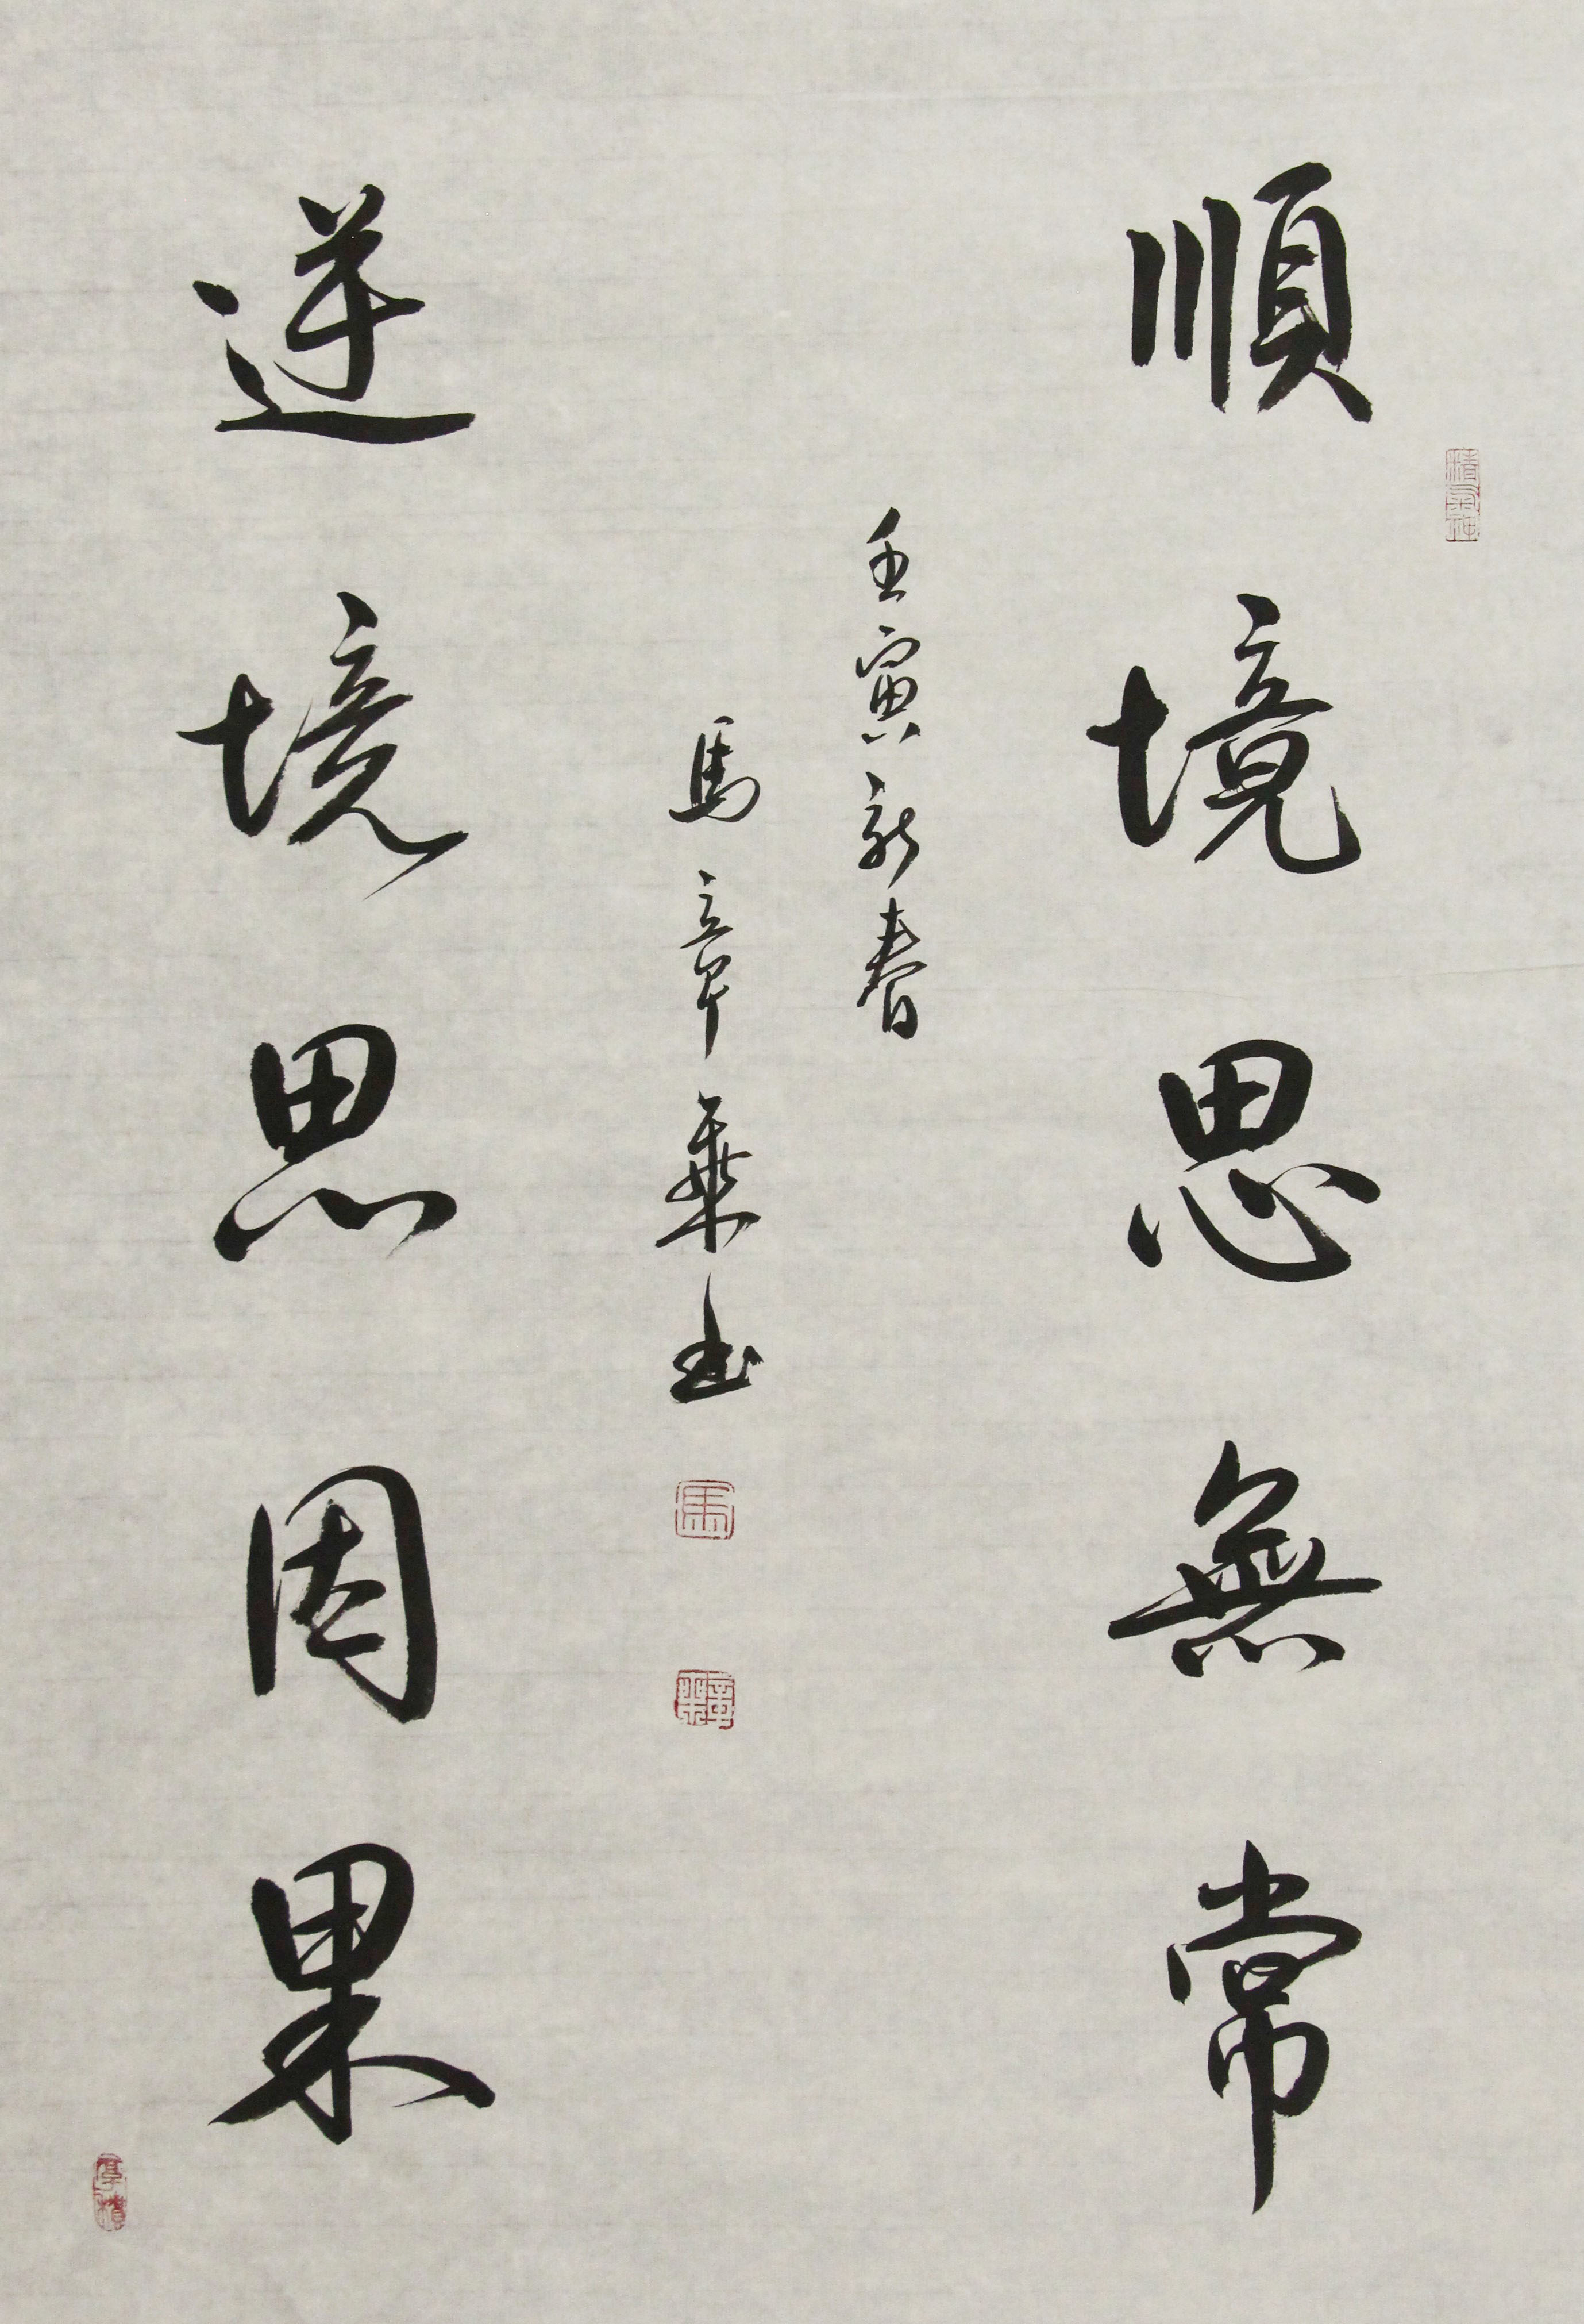 順境思無常
壬寅新春
馬章乘書
逆境思因果